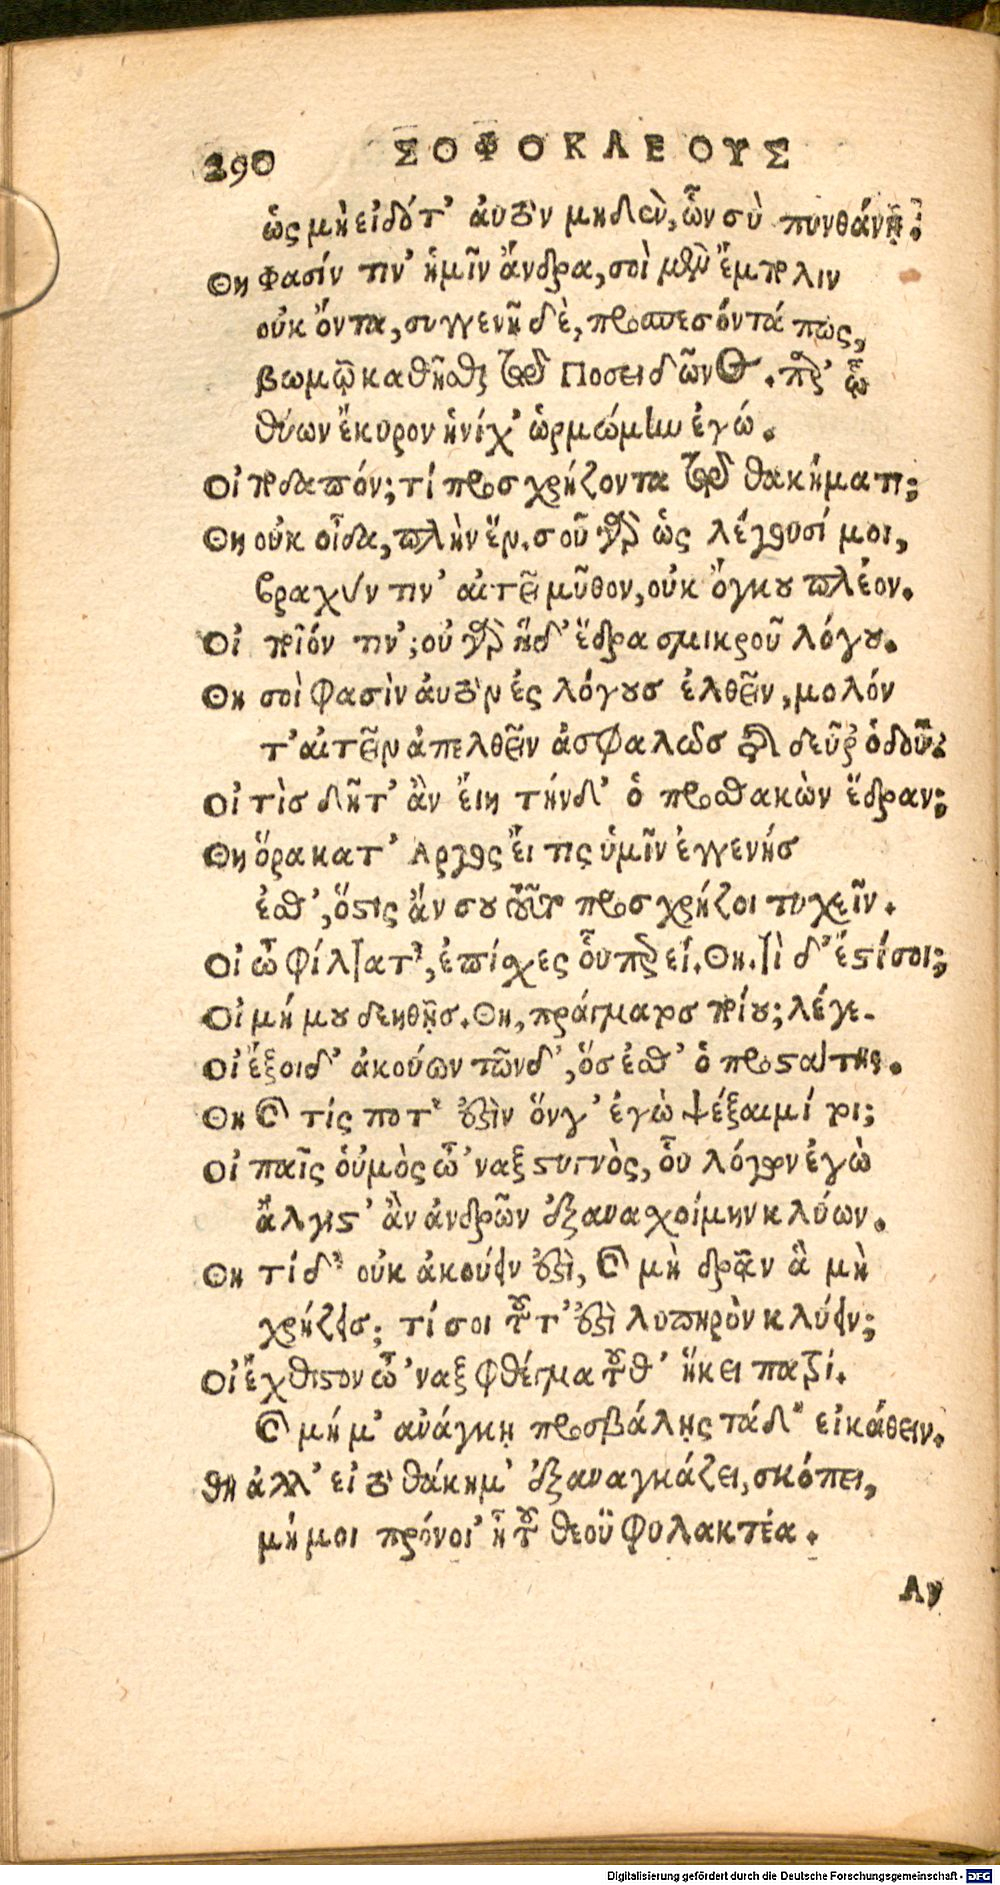 290 ΣΟΦΟΚΛΕΟΥΣ
ὡς μὴ εἰδότ' ἀυτὸν μηδὲν, ὧν σὺ πυνθάνῃ;
Θη φασίν τιν' ἡμῖν ἄνδρα, σοὶ μὲν ἔμπολιν
οὐκ ὄντα, συγγενῆ δὲ, προσπεσόντά πως,
βωμῷ καθῆσθαι τῷ Ποσειδῶνος. παρ' ᾧ
θύων ἔκυρον ἡνίχ' ὡρμώμην ἐγώ.
Οἰ ποδαπόν; τί προσχρήζοντα τῷ θακήματι;
Θη οὐκ οἶδα, πλὴν ἕν. σοῦ γὰρ ὡς λέγουσί μοι,
βραχύν τιν' αἰτεῖ μῦθον, οὐκ ὄγκου πλέον.
Οἰ ποῖόν τιν'; οὐ γὰρ ἥδ' ἕδρα σμικροῦ λόγου.
Θη σοὶ φασὶν ἀυτὸν ἐς λόγουσ ἐλθεῖν, μολόν
τ' αἰτεῖν ἀπελθεῖν ἀσφαλῶσ τῆς δεῦρ' ὁδοῦ.
Οἰ τὶσ δῆτ' ἂν ἔιη τήνδ' ὁ προσθακὼν ἕδραν;
Θη ὅρα κατ' Αργος ἔι τις ὑμῖν ἐγγενήσ
ἐσθ', ὅστις ἄν σου τοῦτο προσχρήζοι τυχεῖν.
Οἰ ὦ φίλτατ', ἐπίσχες οὗπερ εἶ. Θη. τὶ δ' ἔστί σοι;
Οἰ μή μου δεηθῇσ. Θη, πράγματοσ ποίου; λέγε.
Οἰ ἔξοιδ' ἀκούων τῶνδ', ὅσ ἐσθ' ὁ προστάτης.
Θη καὶ τίς ποτ' ἐστὶν ὅνγ' ἐγὼ ψέξαιμί τι;
Οἰ παῖς ὁὐμὸς ὦ 'ναξ στυγνὸς, οὗ λόγων ἐγὼ
ἄλγιστ' ἂν ἀνδρῶν ἐξανασχοίμην κλύων.
Θη τί δ' οὐκ ἀκούειν ἐστὶ, καὶ μὴ δρᾷν ἃ μὴ
χρήζεισ; τί σοι τοῦτ' ἐστὶ λυπηρὸν κλύειν;
Οἰ ἔχθιστον ὦ 'ναξ φθέγμα τοῦθ' ἥκει πατρί.
καὶ μή μ' ἀνάγκῃ προσβάλῃς τάδ' εἰκάθειν.
Θη ἀλλ' εἰ τὸ θάκημ' ἐξαναγκάζει, σκόπει,
μή μοι πρόνοι' ᾖ τοῦ θεοῦ φυλακτέα.
Αν
Digitalisierung gefördert durch die Deutsche Forschungsgemeinschaft - DFG